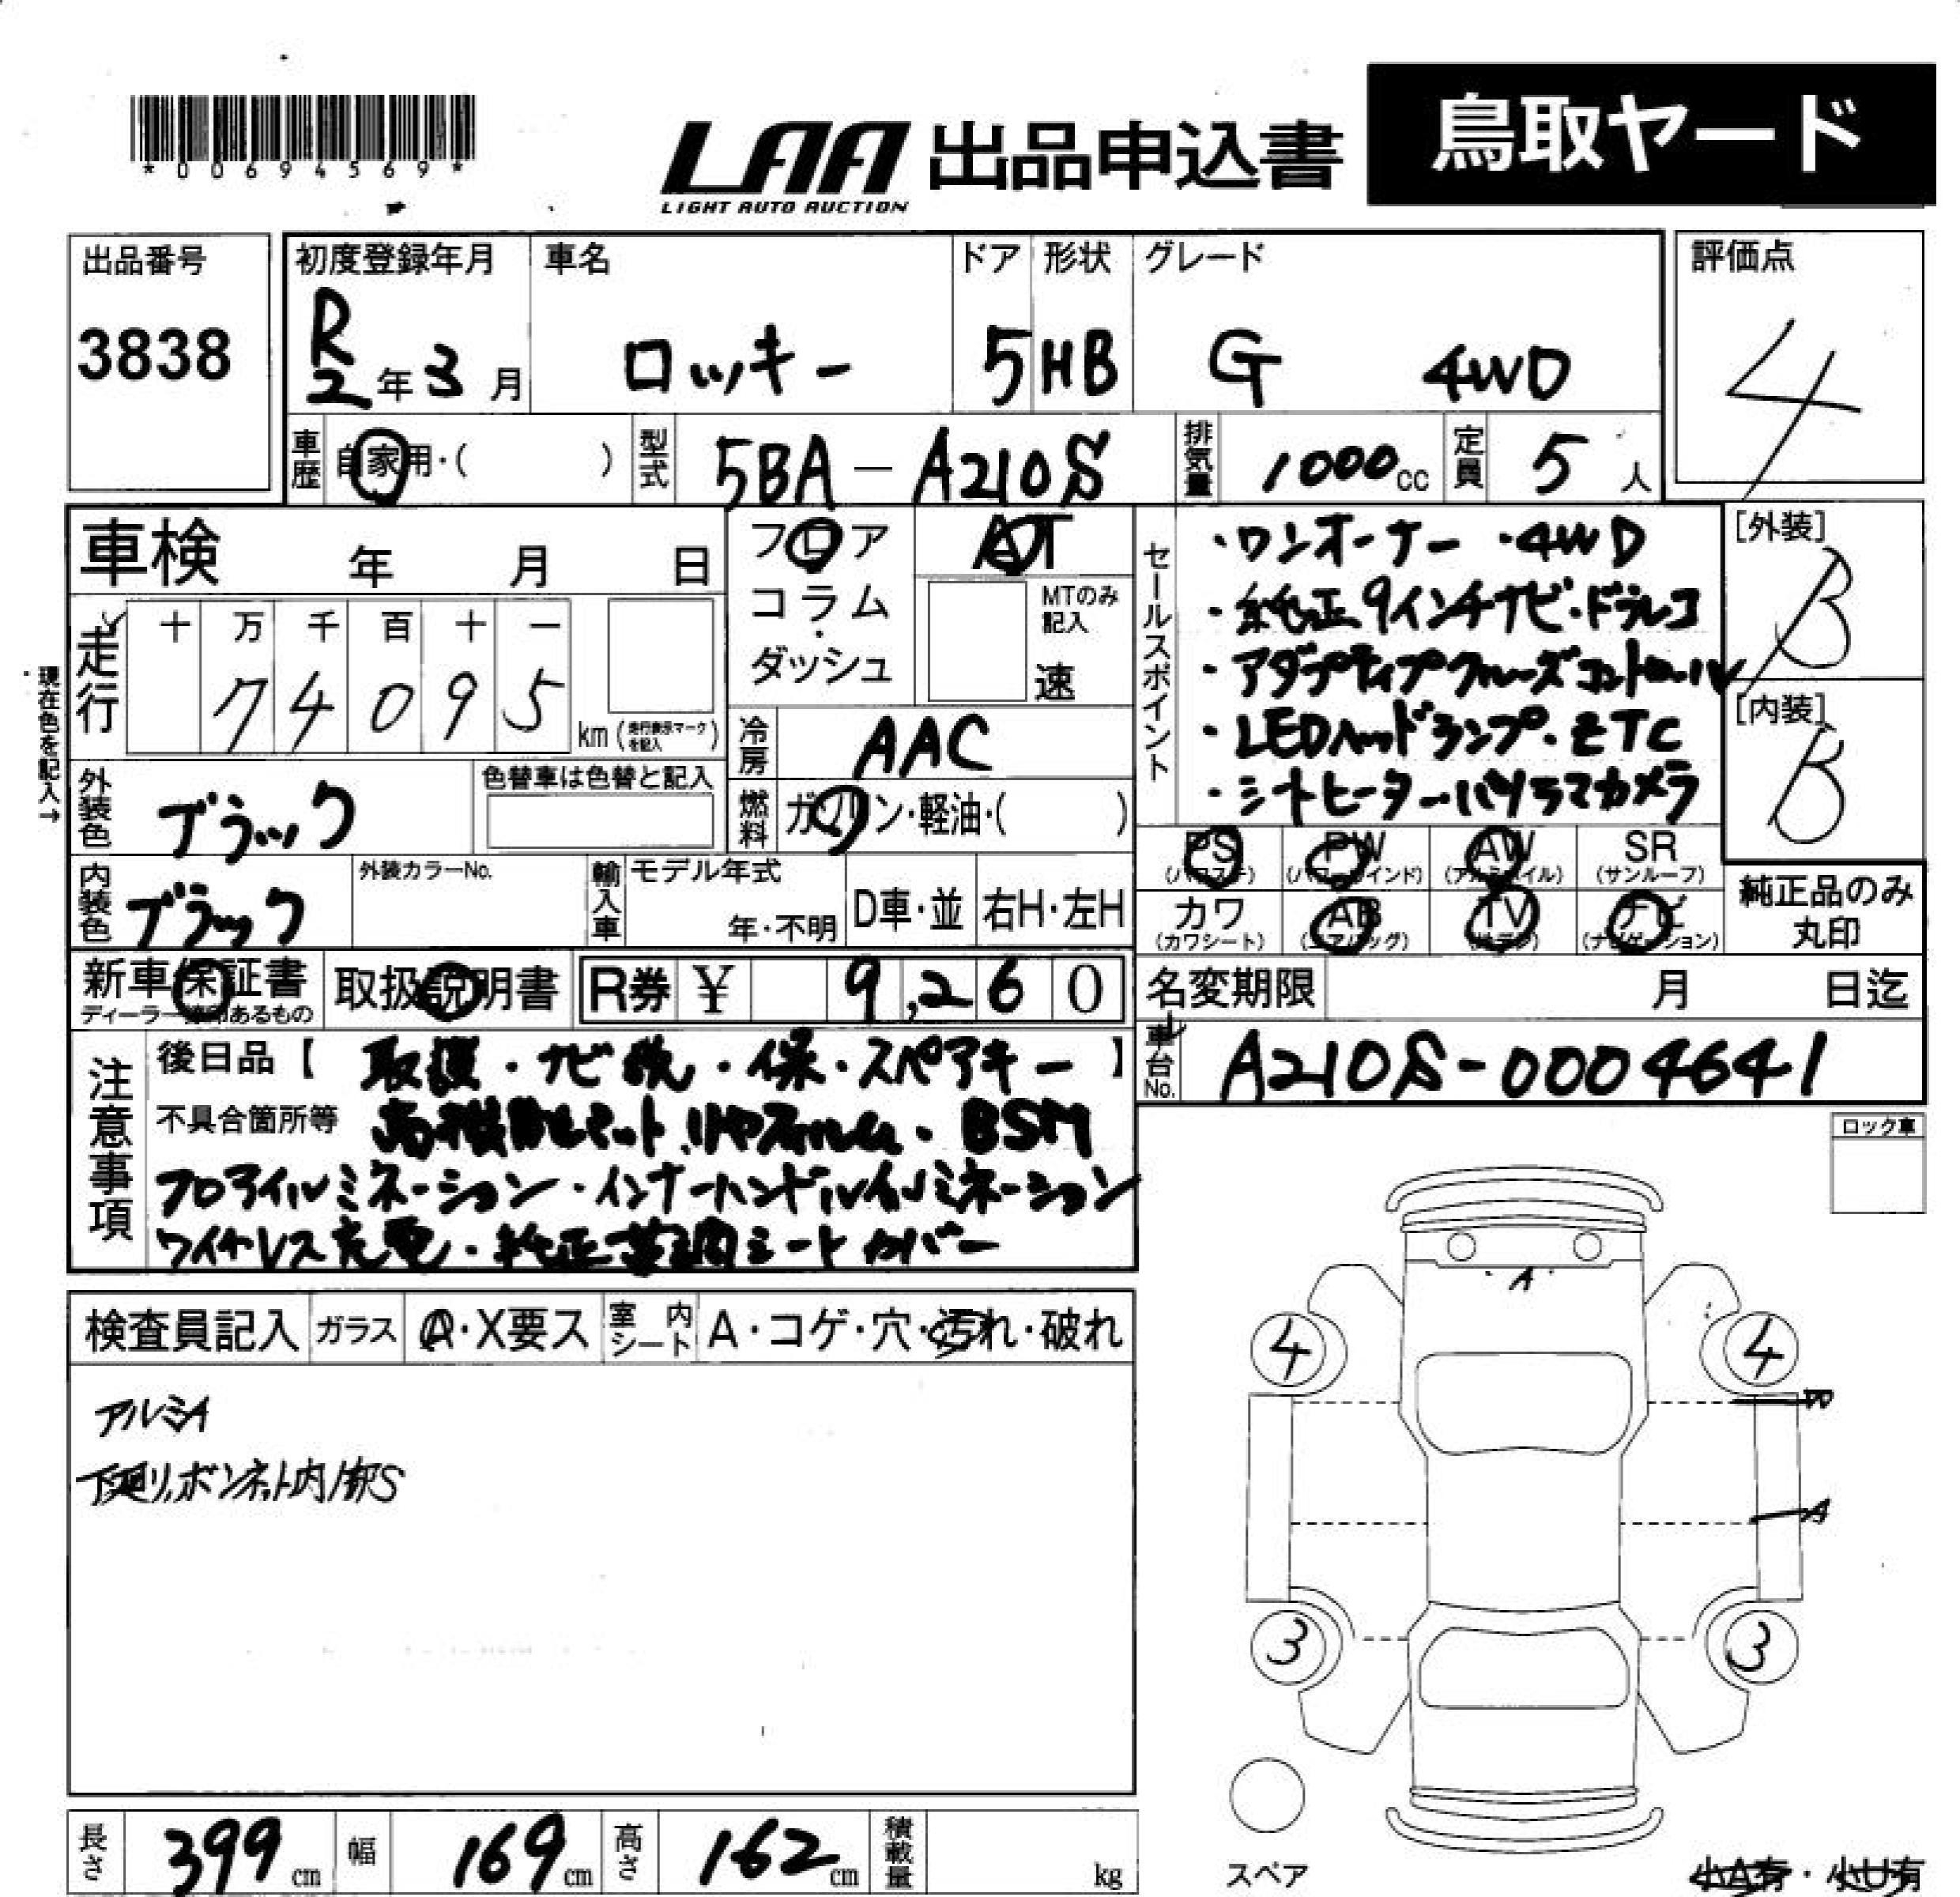 *00694569*
LAA 出品申込書 鳥取ヤード
LIGHT AUTO AUCTION
出品番号 初度登録年月 車名 ドア 形状 グレード 評価点
3838 R2年3月 ロッキー 5 HB G 4WD 4
車歴 自家用・( ) 型式 5BA-A210S 排気量 1000cc 定員 5人
車検 年 月 日 フロア AT
コラム・ダッシュ MTのみ記入 速
セールスポイント
・ワンオーナー ・4WD
・純正9インチナビ・ドラレコ
・アダプティブクルーズコントロール
・LEDヘッドランプ・ETC
・シートヒーター・パノラマカメラ
[外装] B
[内装] B
現在色を記入→
走行 十 万 千 百 十 一
74095 km (走行表示マークを記入)
冷房 AAC
外装色 ブラック 色替車は色替と記入
燃料 ガソリン・軽油・( )
PS (パワステ) PW (パワーウインド) AW (アルミホイル) SR (サンルーフ)
カワ (カワシート) AB (エアバッグ) TV (地デジ) ナビ (ナビゲーション)
純正品のみ丸印
内装色 ブラック 外装カラーNo. 輸入車 モデル年式 年・不明 D車・並 右H・左H
新車保証書 取扱説明書 R券 ¥ 9,260
ディーラー捺印あるもの
名変期限 月 日迄
車台No. A210S-0004641
注意事項
後日品【 取護・ナビ説・保・スペアキー 】
不具合箇所等 リヤフィルム・BSM
フロアイルミネーション・インナーハンドルイルミネーション
ワイヤレス充電・純正革調シートカバー
ロック車
検査員記入 ガラス A・X要ス 室内シート A・コゲ・穴・汚れ・破れ
アルミA
下廻り、ボンネット内/部S
A
4 4
W
A
3 3
スペア
小A有・小U有
長さ 399cm 幅 169cm 高さ 162cm 積載量 kg